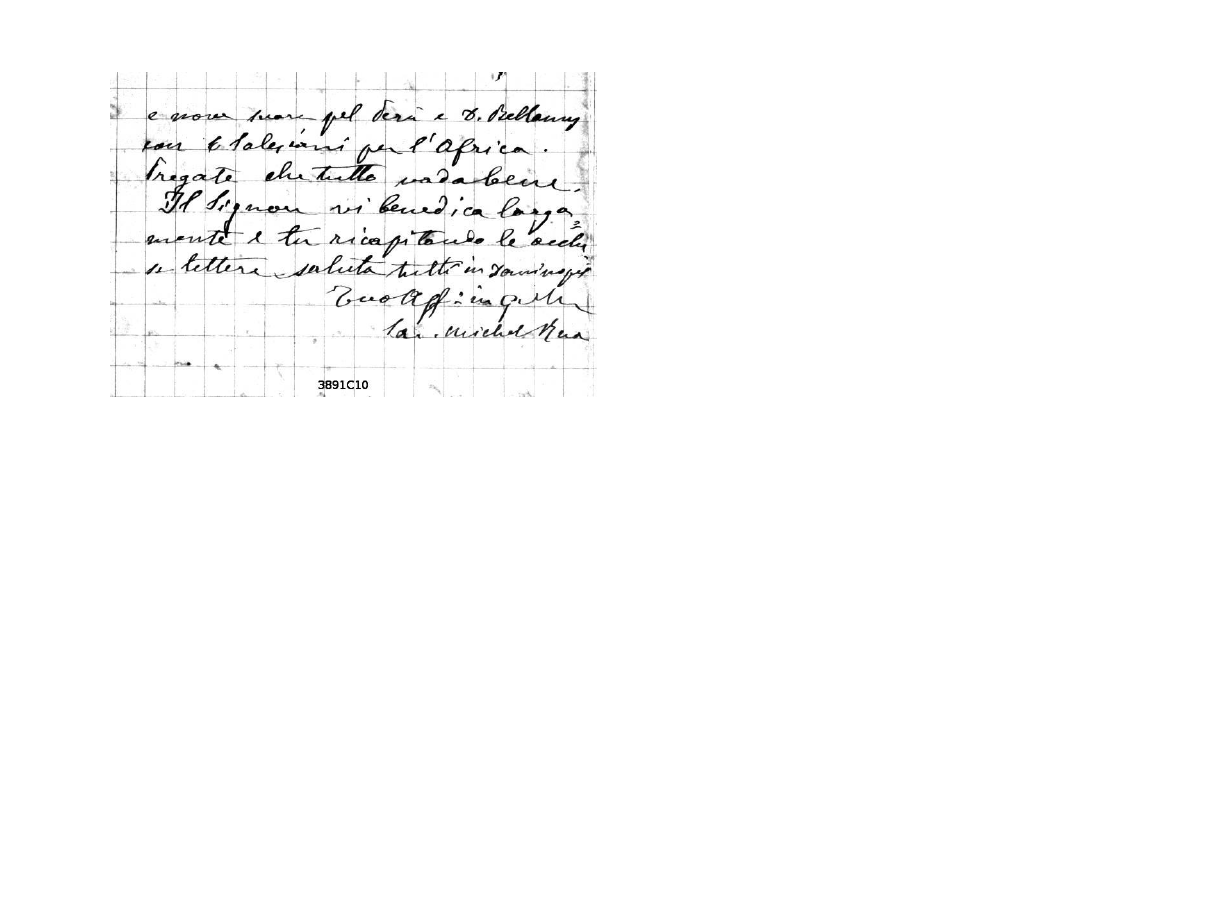 e nove suore pel Perù e D. Bellamy
con 6 Salesiani per l'Africa.
Pregate che tutto vada bene.
Il Signore vi benedica larga=
mente e tu ricapitando le acchiu
se lettere saluta tutti in Domino pel
Tuo Aff: in G. e M.
Sac. Michel Rua
3891C10